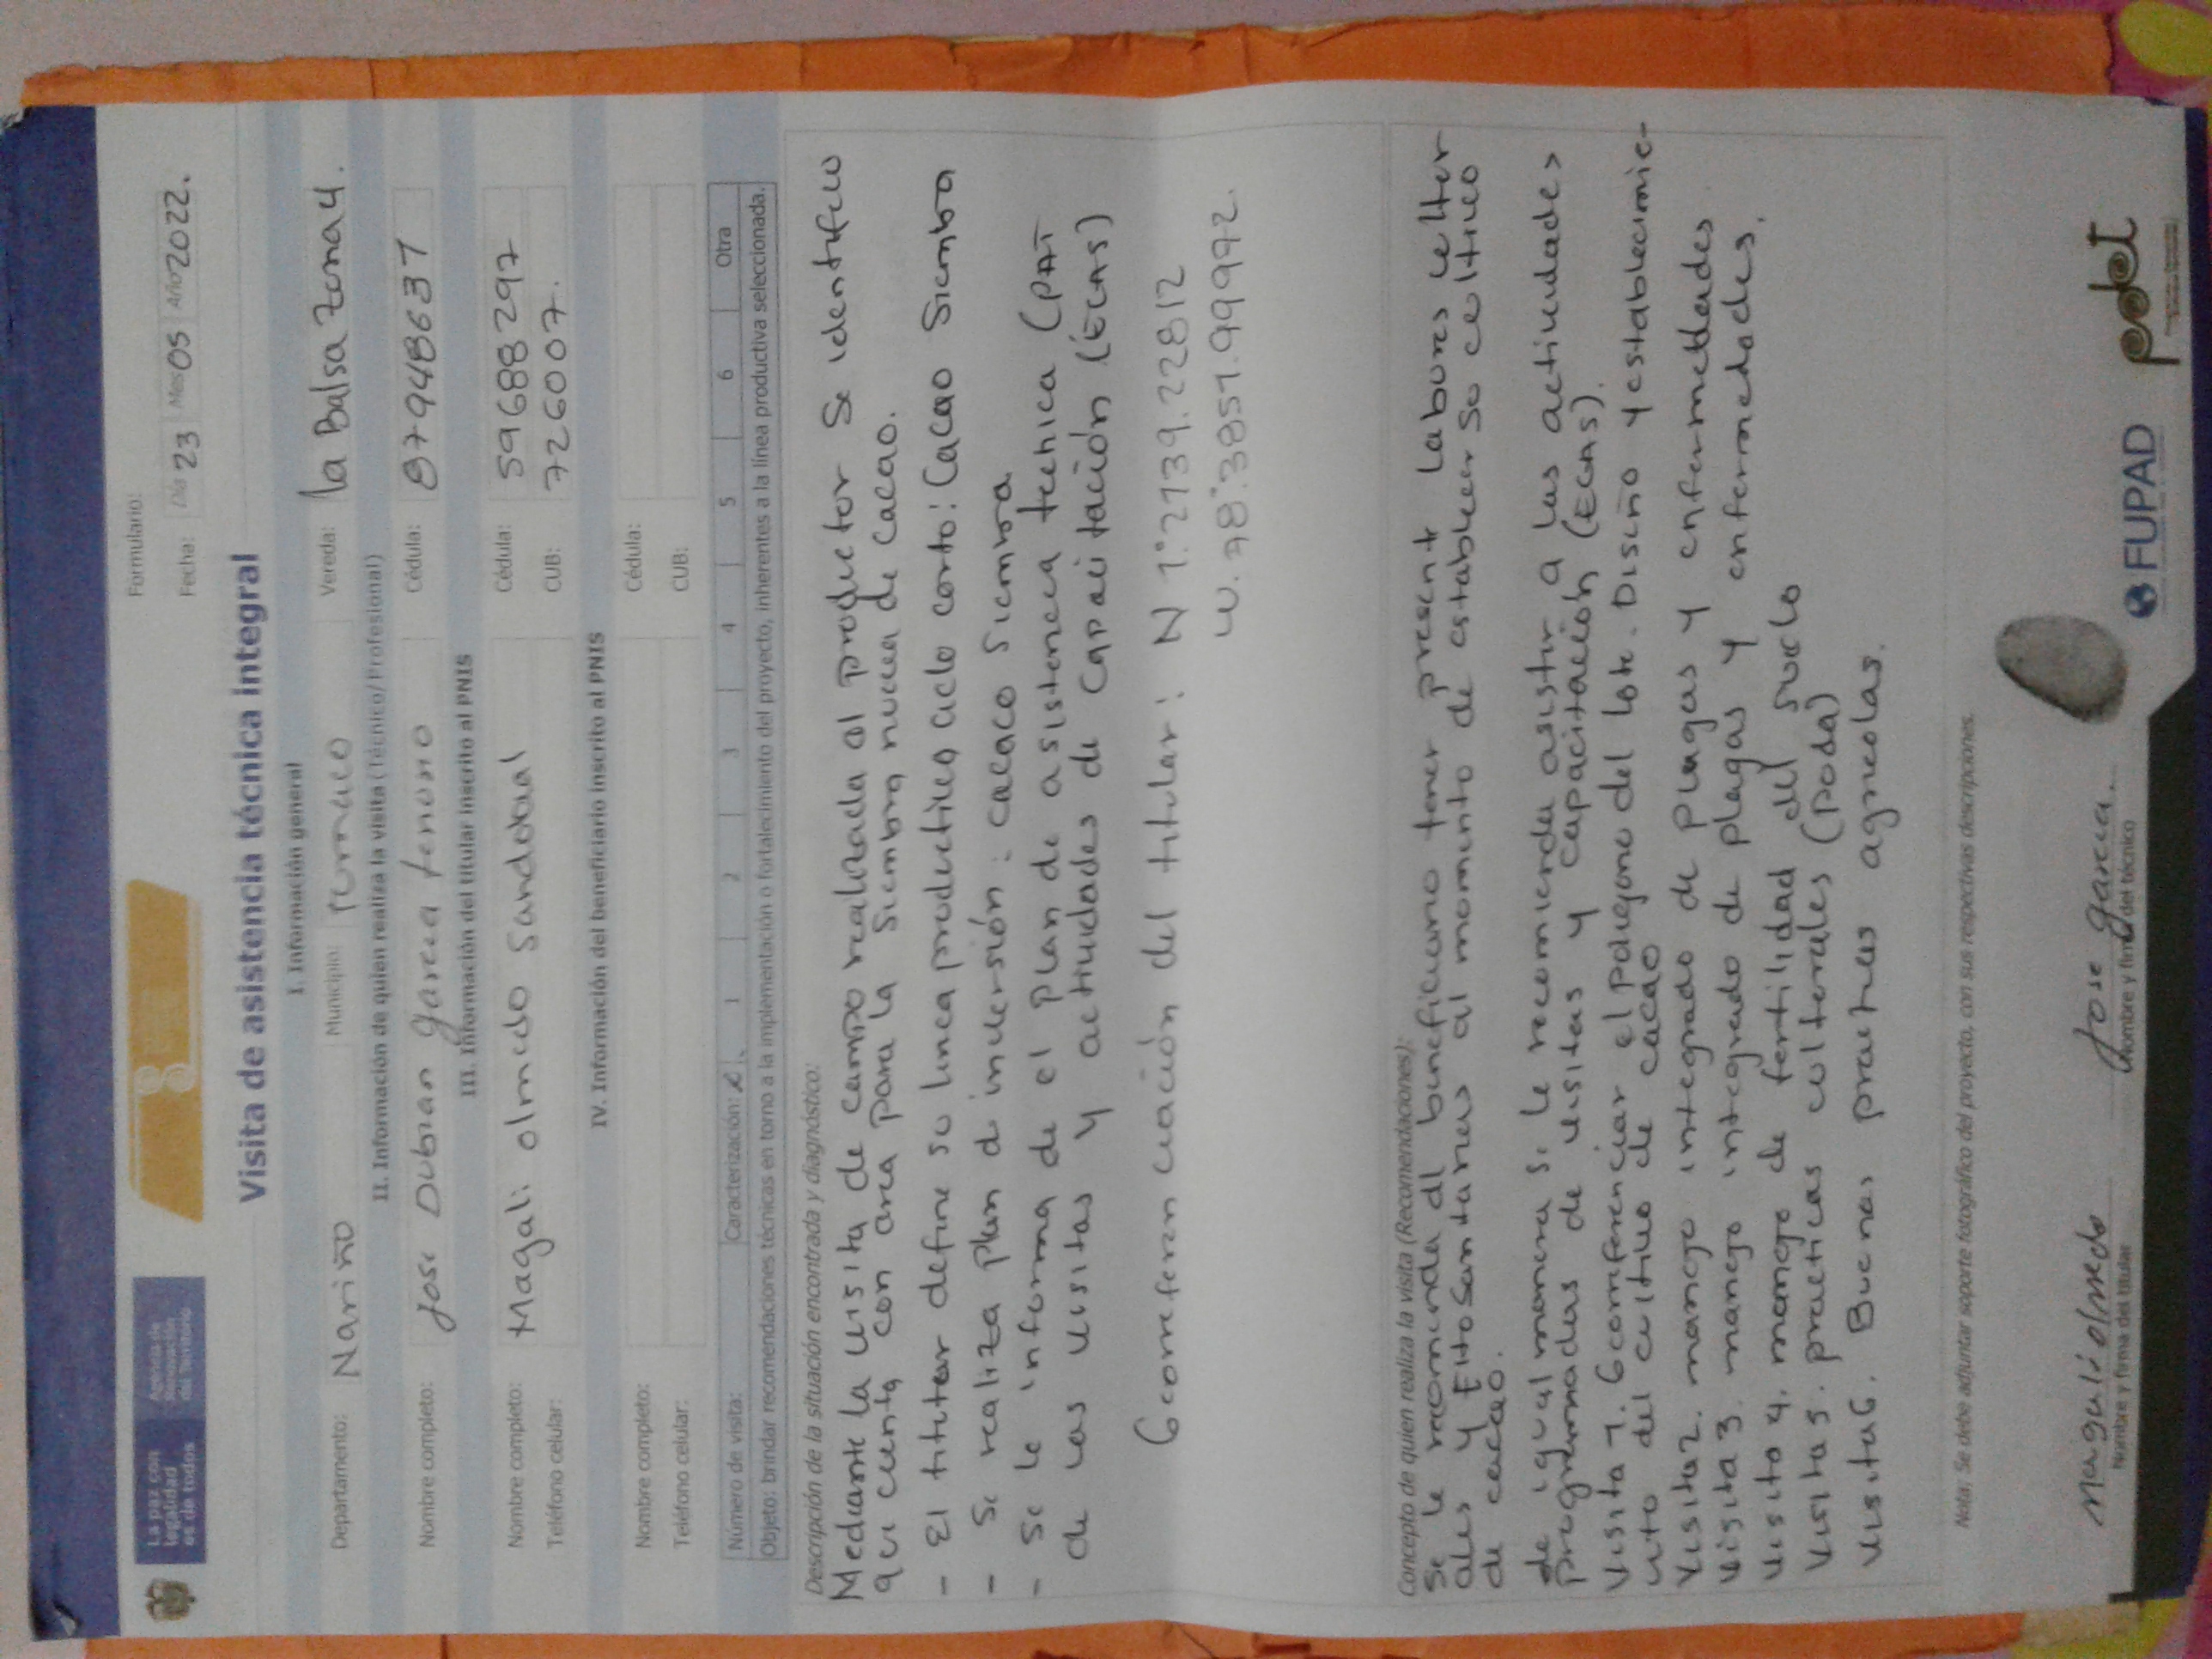 La paz con
legalidad
es de todos
Agencia de
Renovación
del Territorio
Formulario:
Fecha: Día 23 Mes 05 Año 2022.
Visita de asistencia técnica integral
I. Información general
Departamento: Nariño Municipio: Tumaco Vereda: la Balsa Zona 4.
II. Información de quien realiza la visita (Técnico/Profesional)
Nombre completo: Jose Dubian Garcia tenorio Cédula: 87948637
III. Información del titular inscrito al PNIS
Nombre completo: Magali olmedo Sandoval Cédula: 59688297
Teléfono celular: CUB: 726007.
IV. Información del beneficiario inscrito al PNIS
Nombre completo: Cédula:
Teléfono celular: CUB:
Número de visita: Caracterización: x 1 2 3 4 5 6 Otra
Objeto: brindar recomendaciones técnicas en torno a la implementación o fortalecimiento del proyecto, inherentes a la línea productiva seleccionada.
Descripción de la situación encontrada y diagnóstico:
Mediante la visita de campo realizada al productor Se identifico
que cuenta con area para la Siembra nueva de Cacao.
- El titular define su linea productiva ciclo corto: Cacao Siembra
- Se realiza plan de inversión: cacao Siembra
- Se le informa de el plan de asistencia technica (PAT
de las visitas y actividades de Capacitación (ECAS)
Georeferenciación del titular: N 1°.2139.22812
W. 78°.3851.99992.
Concepto de quien realiza la visita (Recomendaciones):
Se le recomienda al beneficiario tener present labores culter
ales y Fitosanitarias al momento de establecer su cultivo
de cacao.
de igual manera se le recomienda asistir a las actividades
programadas de visitas y capacitación (ECAS).
Visita 1. Georeferenciar el poligono del lote. Diseño y establecimie-
nto del cultivo de cacao
Visita 2. manejo integrado de plagas y enfermedades
Visita 3. manejo integrado de plagas y enfermedades.
Visita 4. manejo de fertilidad del suelo
Visita 5. practicas culturales (poda)
Visita 6. Buenas practicas agricolas.
Nota: Se debe adjuntar soporte fotográfico del proyecto, con sus respectivas descripciones.
Magali olmedo
Nombre y firma del titular
Jose garcia.
Nombre y firma del técnico
FUPAD
pdet